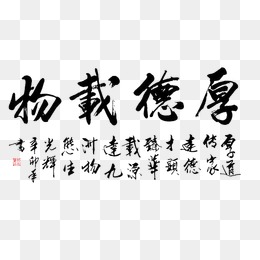 厚德載物
厚道
傳家
達德
才
臻華
載
達九
洲物
態生
光輝
辛卯年
書